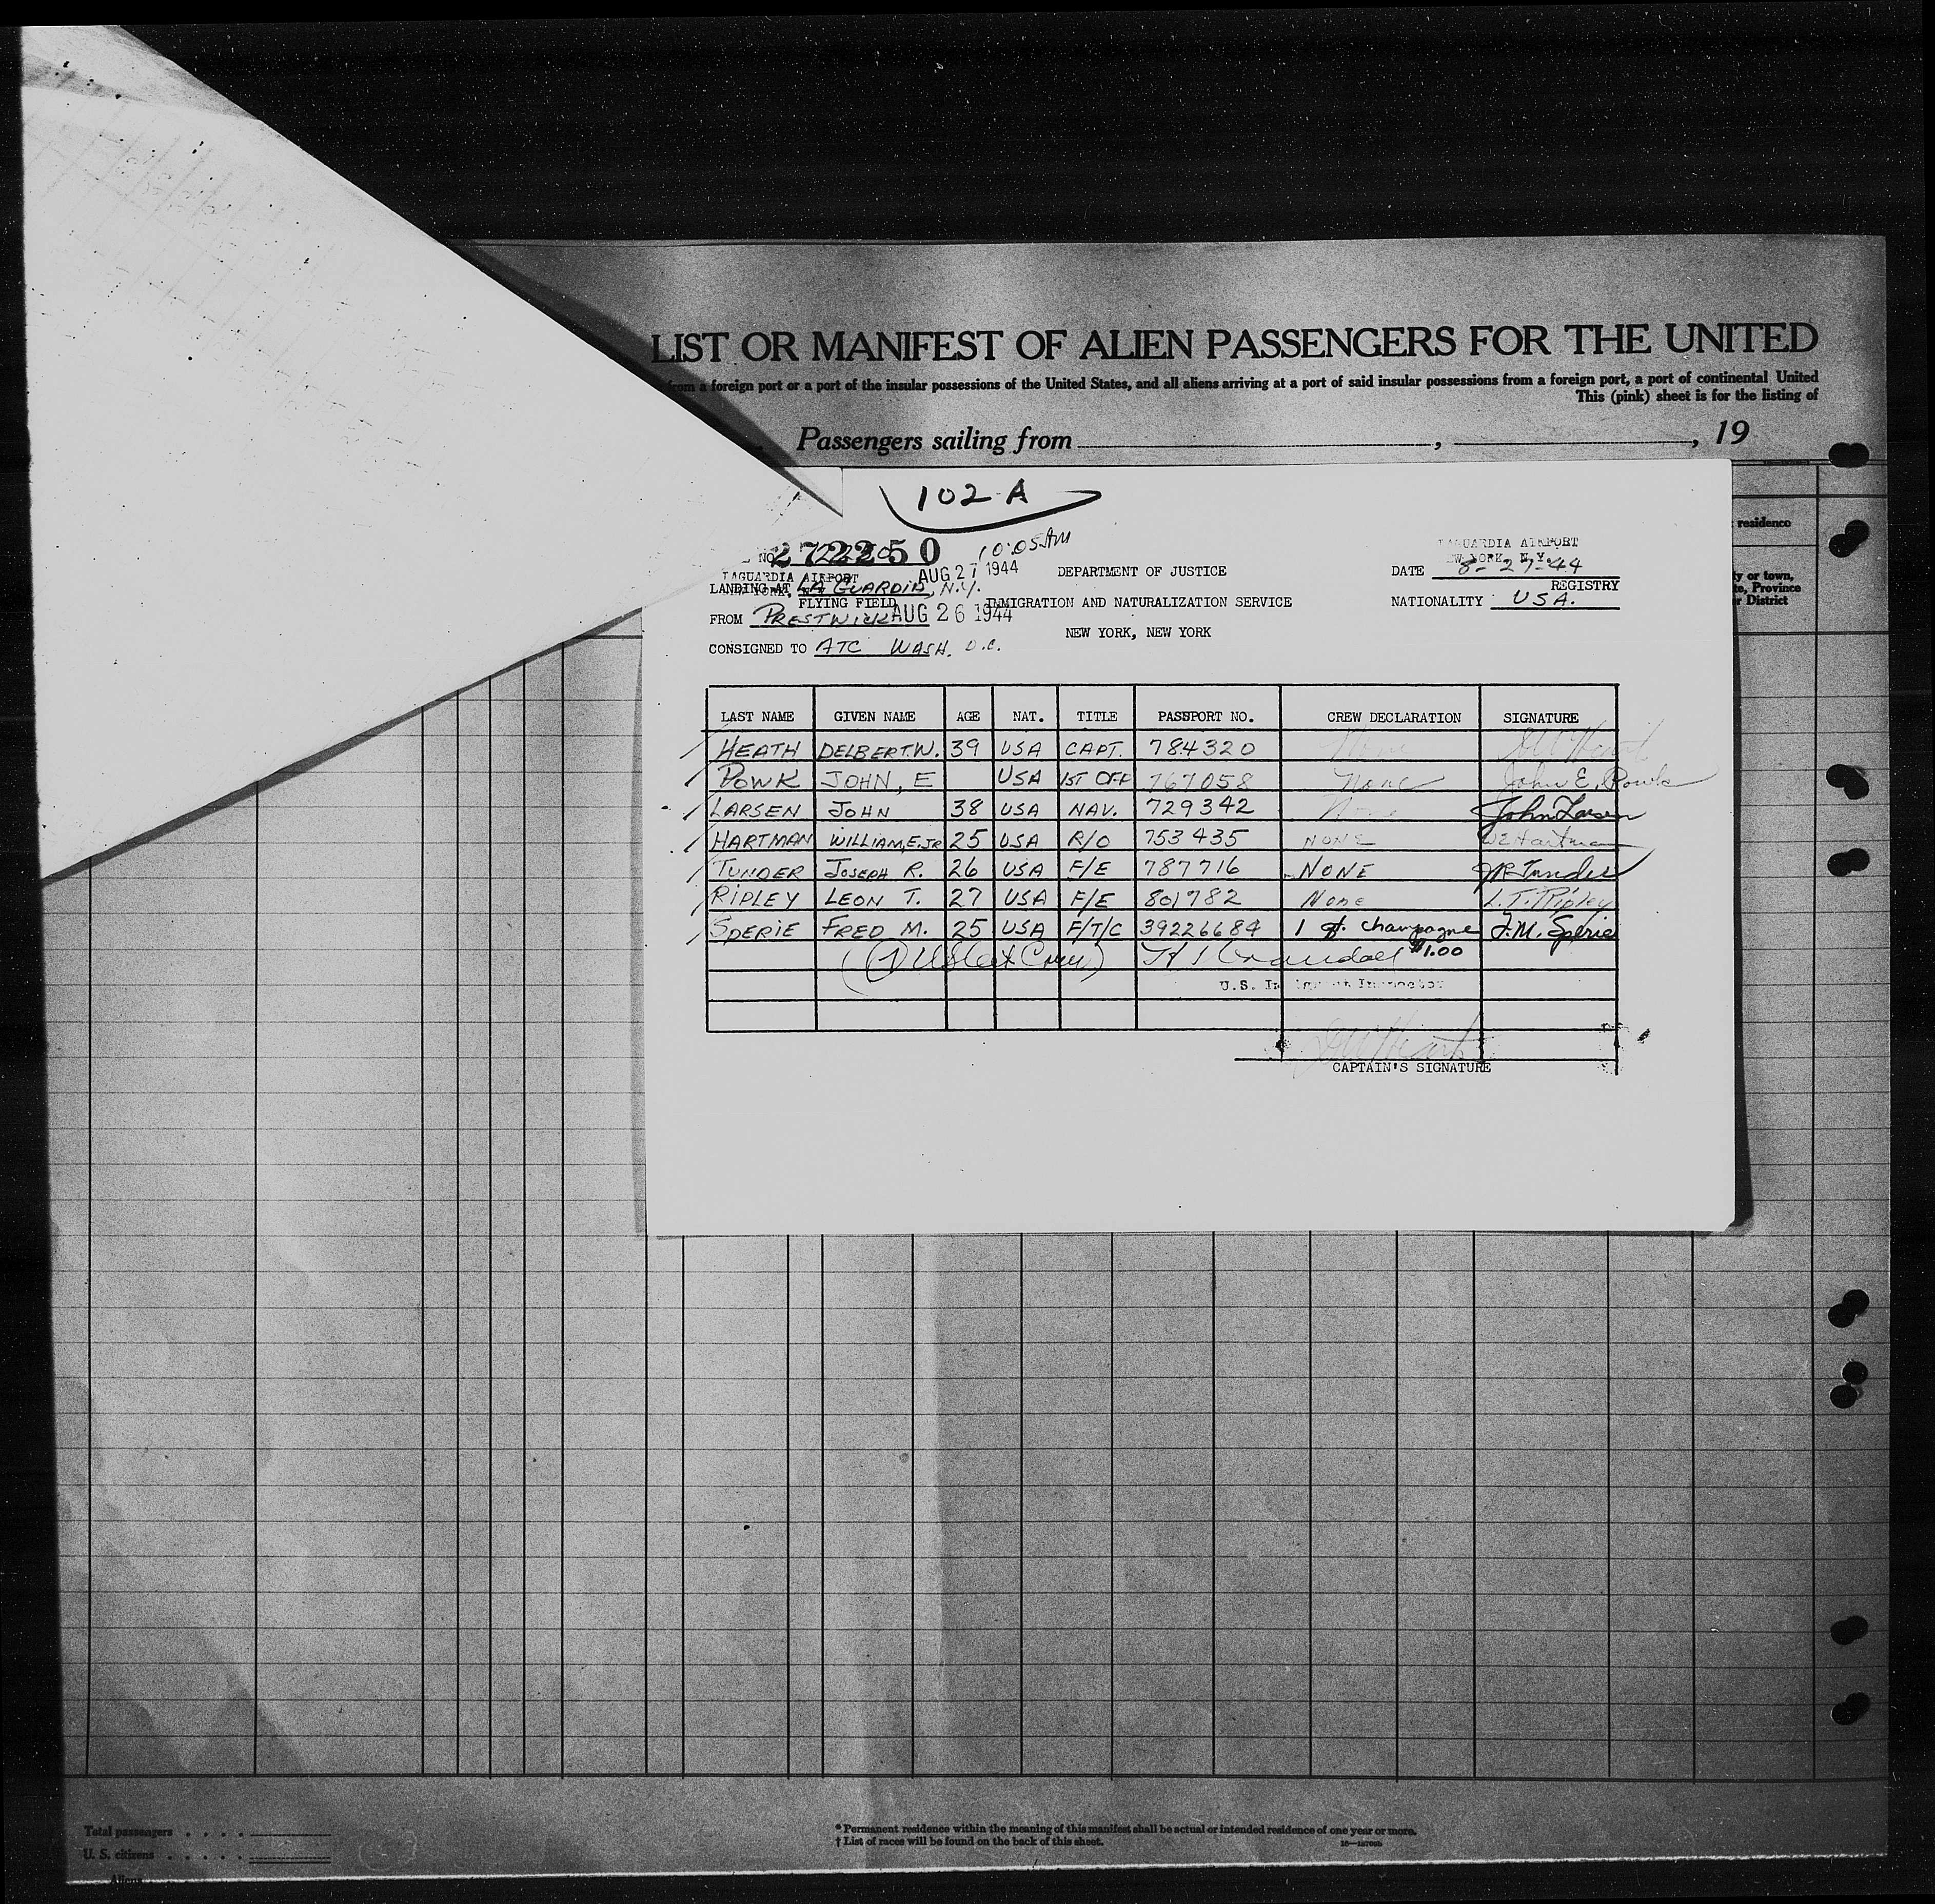 LIST OR MANIFEST OF ALIEN PASSENGERS FOR THE UNITED
from a foreign port or a port of the insular possessions of the United States, and all aliens arriving at a port of said insular possessions from a foreign port, a port of continental United
This (pink) sheet is for the listing of
Passengers sailing from , , 19
102-A
residence
y or town,
te, Province
r District
NO. 272250 10:05 AM
LAGUARDIA AIRPORT
NEW YORK, N.Y.
LAGUARDIA AIRPORT AUG 27 1944 DEPARTMENT OF JUSTICE DATE 8-27-44
LANDING AT LA GUARDIA, N.Y. REGISTRY
FLYING FIELD IMMIGRATION AND NATURALIZATION SERVICE NATIONALITY USA.
FROM PRESTWICK AUG 26 1944
NEW YORK, NEW YORK
CONSIGNED TO ATC WASH. D.C.
LAST NAME GIVEN NAME AGE NAT. TITLE PASSPORT NO. CREW DECLARATION SIGNATURE
HEATH DELBERT.W. 39 USA CAPT. 784320 None DW Heath
POWK JOHN, E USA 1ST OFF 767058 None John E. Powk
LARSEN JOHN 38 USA NAV. 729342 None John Larsen
HARTMAN WILLIAM,E.JR 25 USA R/O 753435 NONE WE Hartman
TUNDER JOSEPH R. 26 USA F/E 787716 NONE JR Tunder
RIPLEY LEON T. 27 USA F/E 801782 None L.T. Ripley
SPERIE FRED M. 25 USA F/T/C 39226684 1 qt. champagne F.M. Sperie
$1.00
(7 USCit Crew) Crandall
U.S. Immigrant Inspector
DW Heath
CAPTAIN'S SIGNATURE
Total passengers
U. S. citizens
Aliens
* Permanent residence within the meaning of this manifest shall be actual or intended residence of one year or more.
† List of races will be found on the back of this sheet.